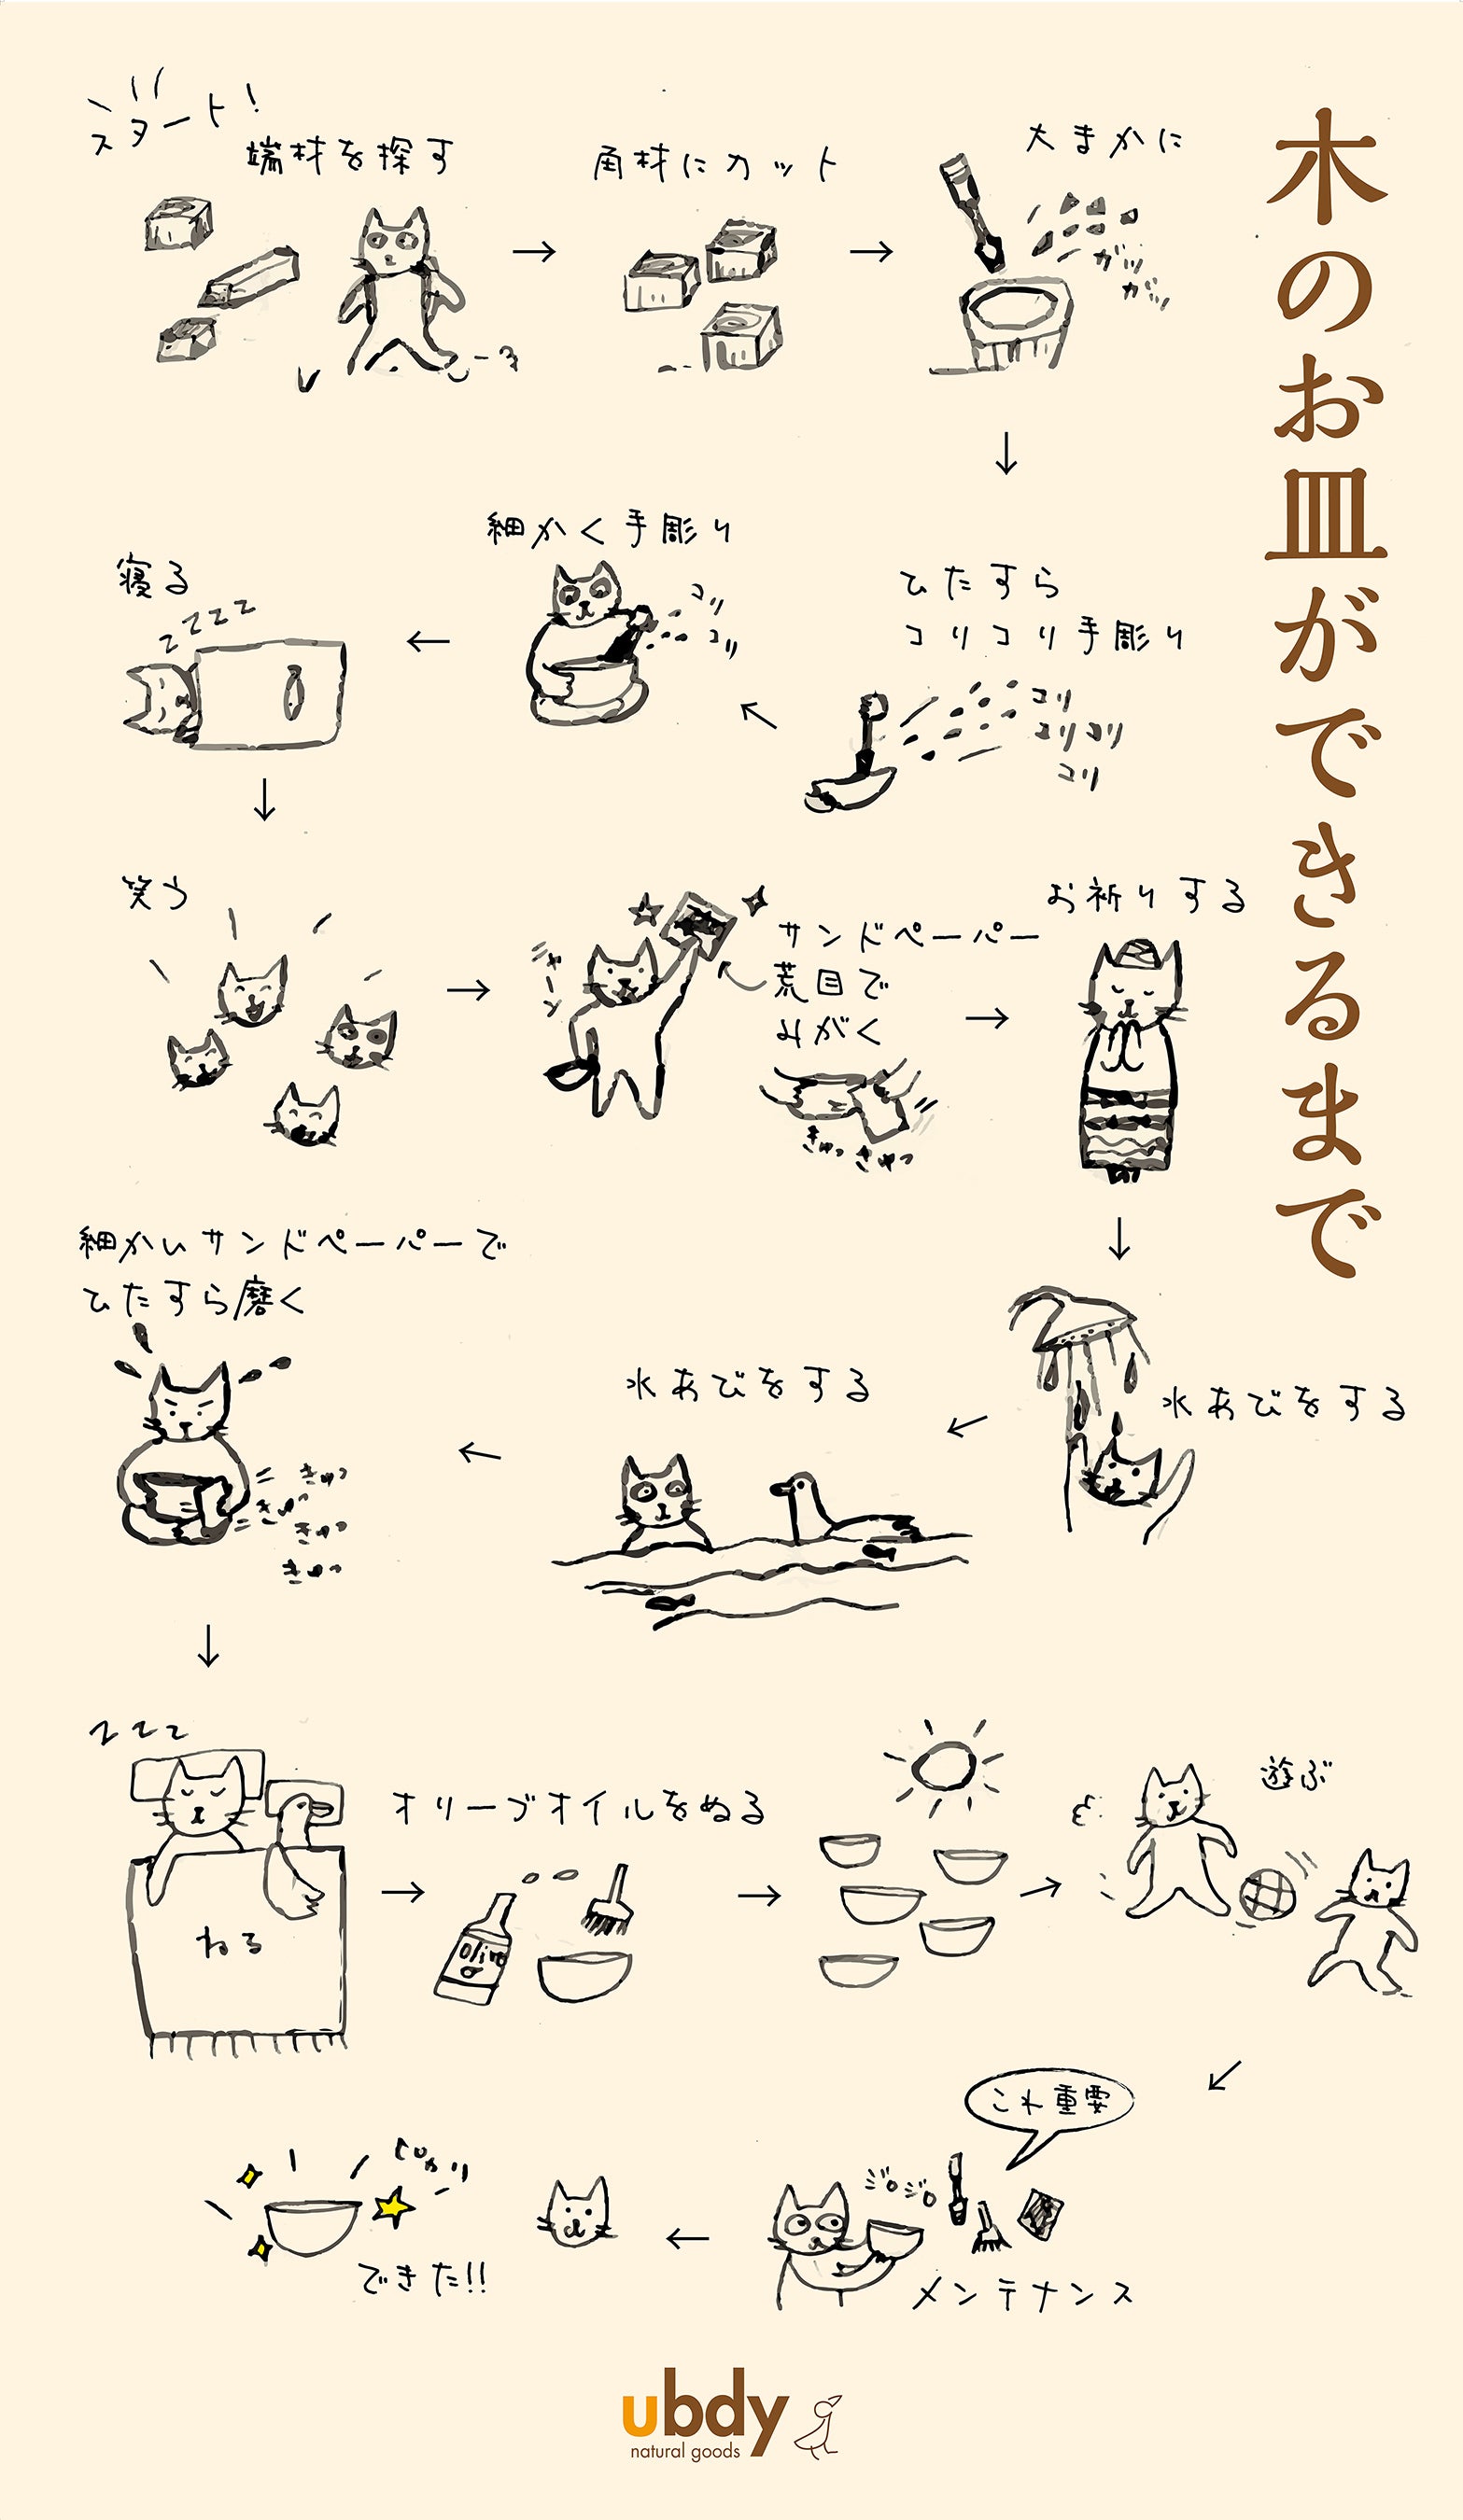 木のお皿ができるまで
スタート!
端材を探す
角材にカット
大まかに
ガッ
ガッ
ひたすら
コリコリ手彫り
コリ
コリコリ
コリ
細かく手彫り
コリ
コリ
寝る
zzzz
笑う
ジャーン
サンドペーパー
荒目で
みがく
きゅっ きゅっ
お祈りする
水あびをする
水あびをする
細かいサンドペーパーで
ひたすら磨く
きゅっ
きゅっ
きゅっ
きゅっ
zzz
ねる
オリーブオイルをぬる
Olive
遊ぶ
これ重要
ジロジロ
メンテナンス
できた!!
ubdy
natural goods